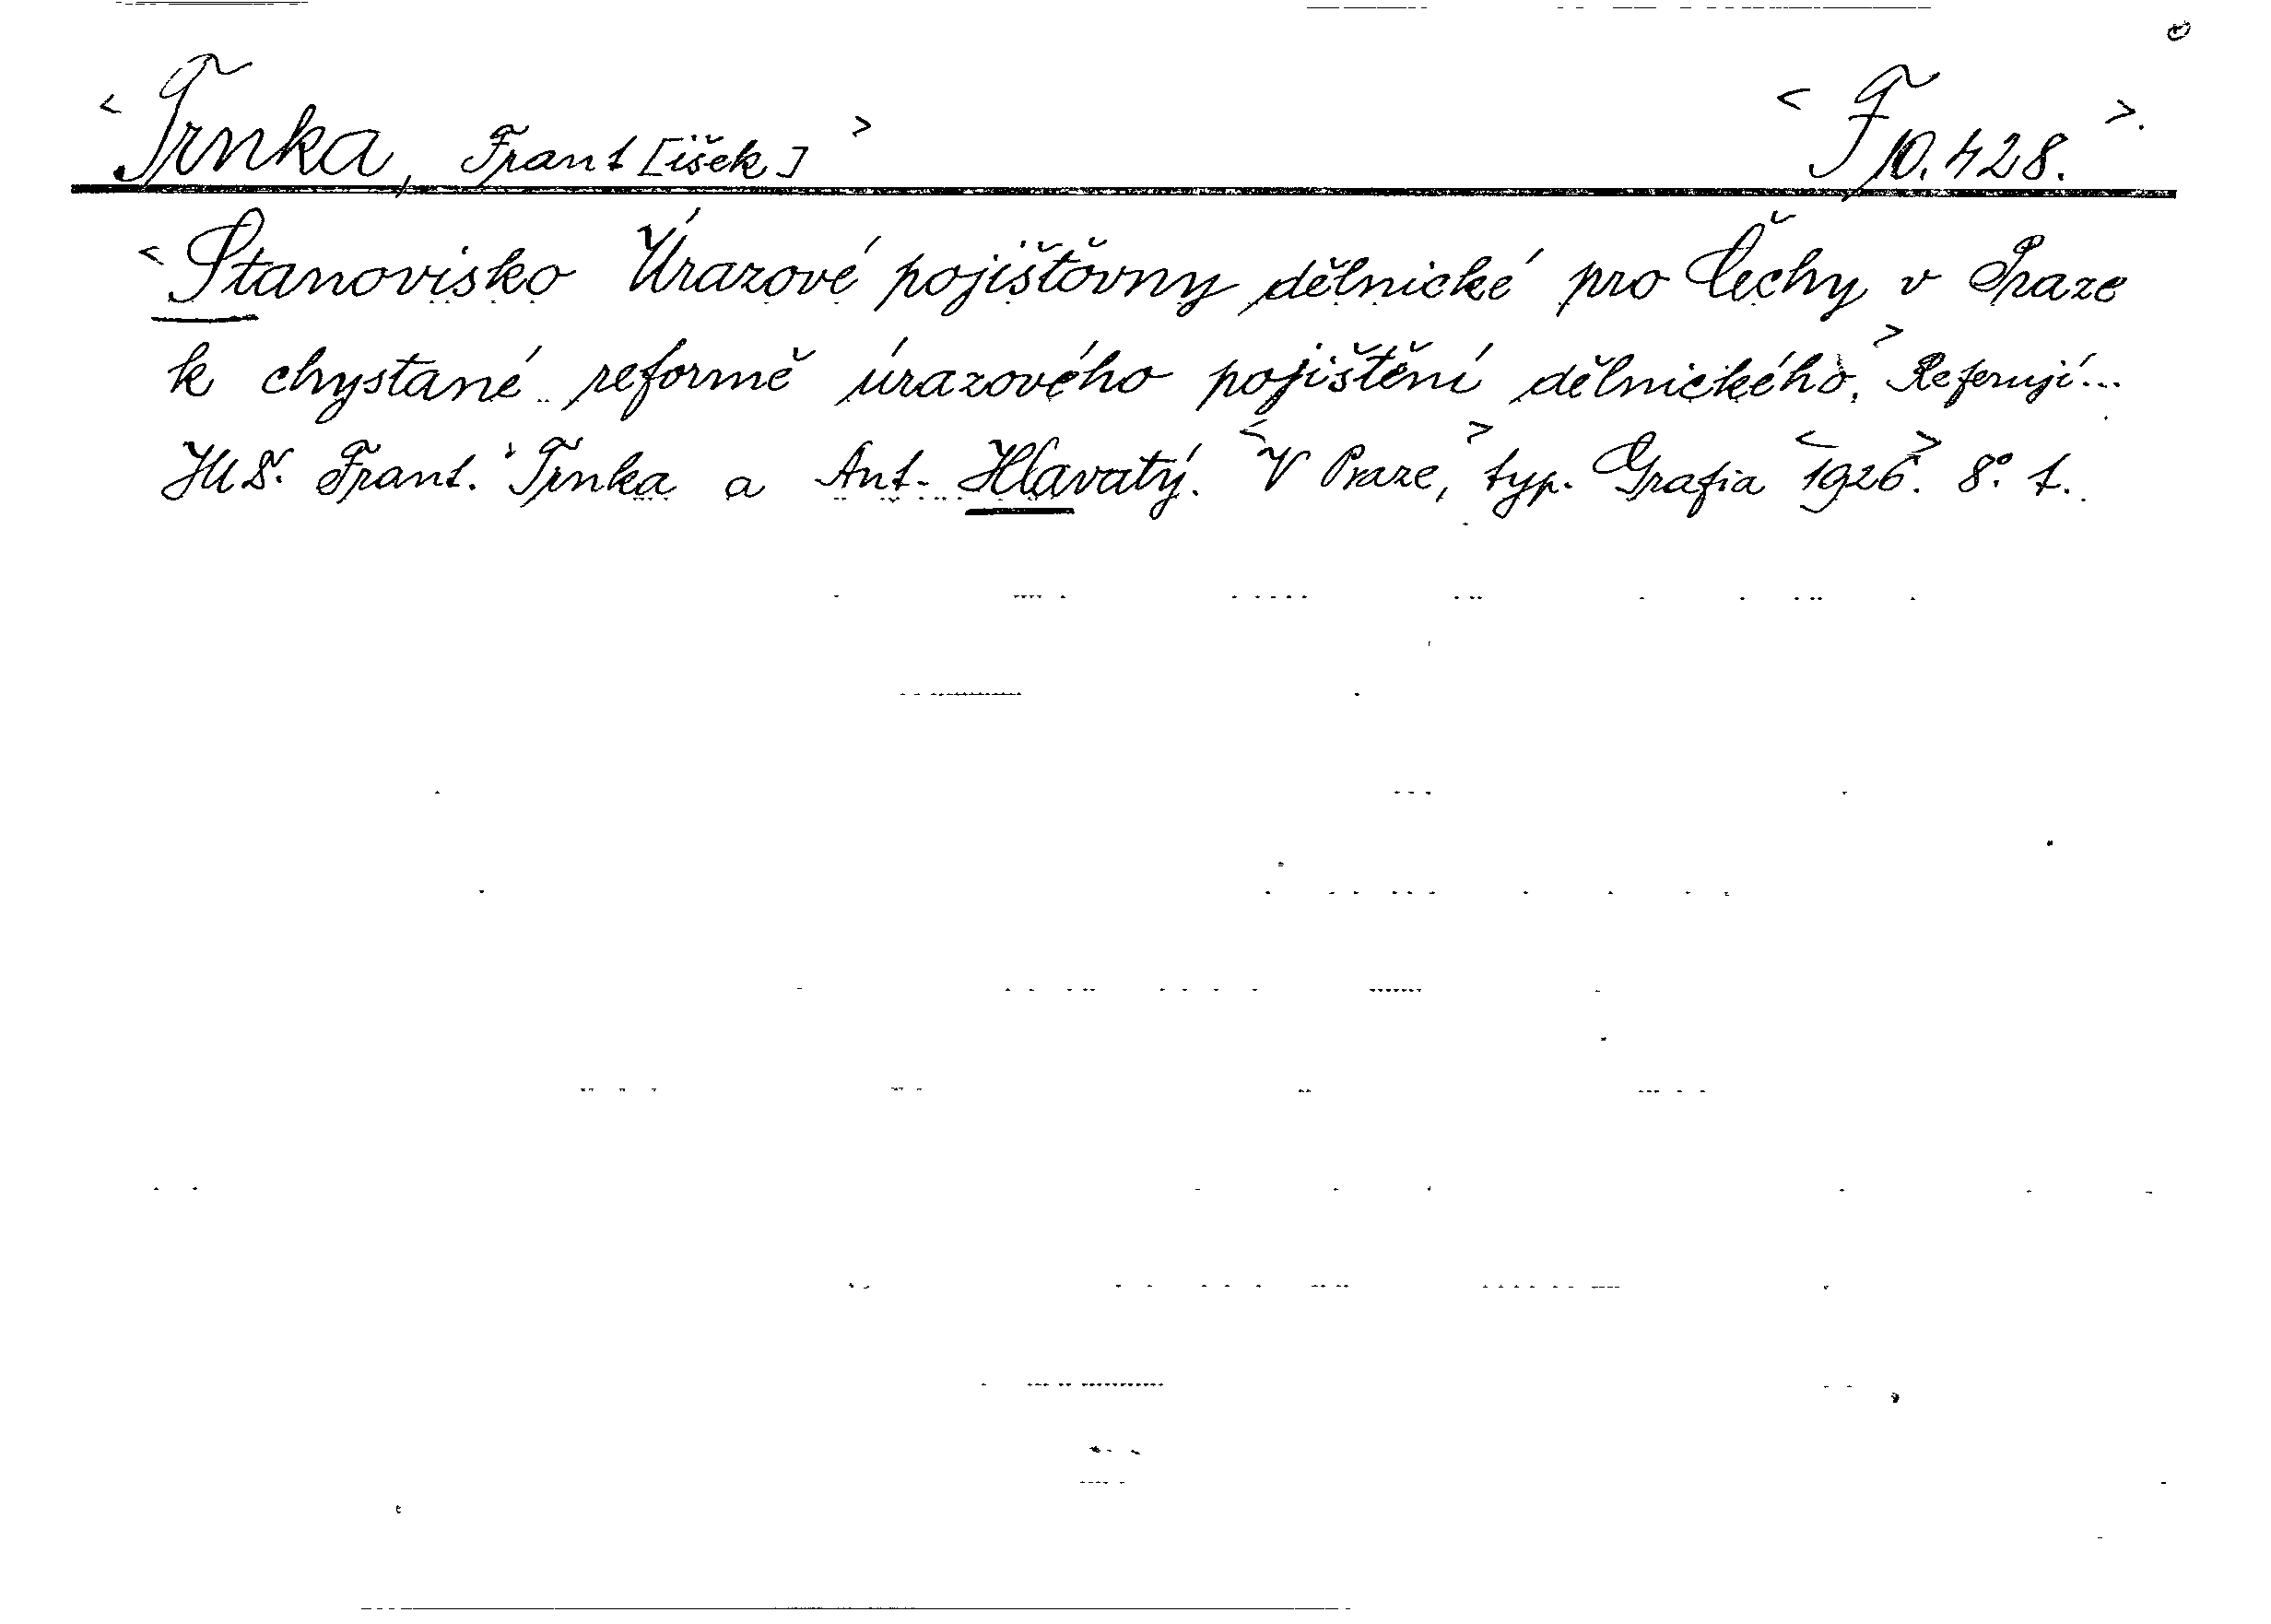 < Trnka, Frant[išek] > < F 10.428. >.
< Stanovisko Úrazové pojišťovny dělnické pro Čechy v Praze
k chystané reformě úrazového pojištění dělnického. > Referují...
JUD. Frant. Trnka a Ant. Hlavatý. < V Praze, > typ. Grafia < 1926. > 8°. 1.